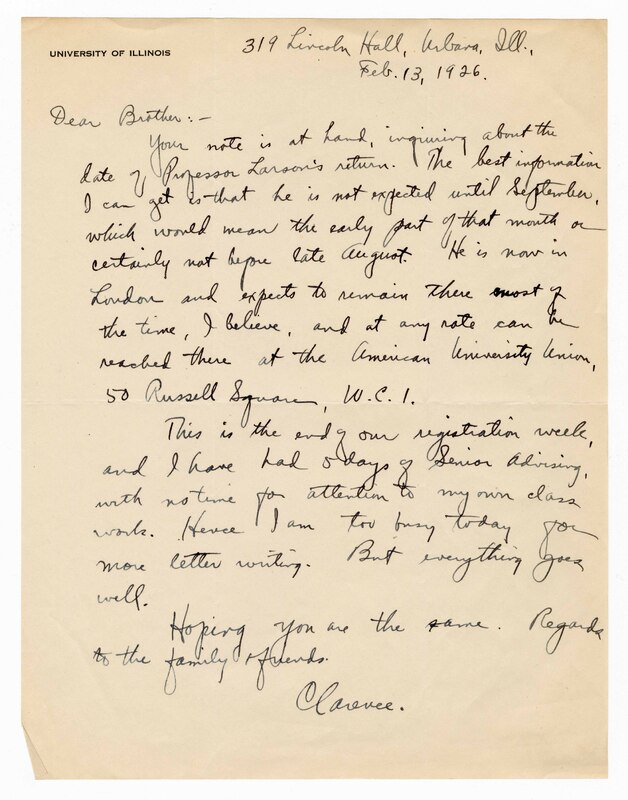 UNIVERSITY OF ILLINOIS
319 Lincoln Hall, Urbana, Ill.,
Feb. 13, 1926.
Dear Brother:-
Your note is at hand, inquiring about the
date of Professor Larson's return. The best information
I can get is that he is not expected until September,
which would mean the early part of that month or
certainly not before late August. He is now in
London and expects to remain there most of
the time, I believe, and at any rate can be
reached there at the American University Union,
50 Russell Square, W.C.1.
This is the end of our registration week,
and I have had 5 days of Senior Advising,
with no time for attention to my own class
work. Hence I am too busy today for
more letter writing. But everything goes
well.
Hoping you are the same. Regards
to the family & friends.
Clarence.